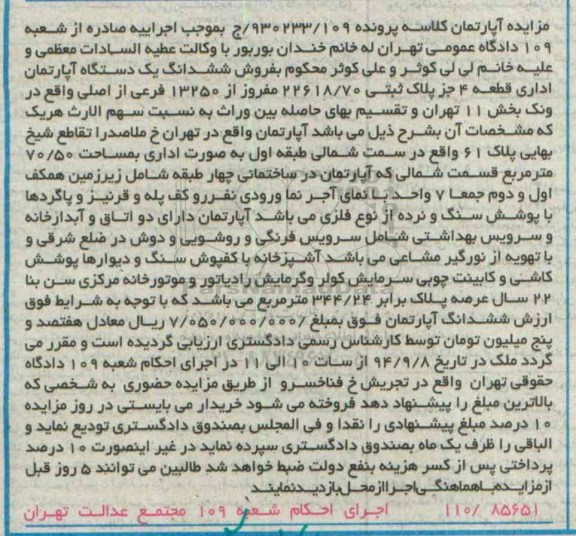 مزایده آپارتمان کلاسه پرونده ۹۳۰۲۳۳/۱۰۹/ج بموجب اجراییه صادره از شعبه
۱۰۹ دادگاه عمومی تهران له خانم خندان بوربور با وکالت عطیه السادات معظمی و
علیه خانم لی لی کوثر و علی کوثر محکوم بفروش ششدانگ یک دستگاه آپارتمان
اداری قطعه ۴ جز پلاک ثبتی ۲۲۶۱۸/۷۰ مفروز از ۱۳۲۵۰ فرعی از اصلی واقع در
ونک بخش ۱۱ تهران و تقسیم بهای حاصله بین وراث به نسبت سهم الارث هریک
که مشخصات آن بشرح ذیل می باشد آپارتمان واقع در تهران خ ملاصدرا تقاطع شیخ
بهایی پلاک ۶۱ واقع در سمت شمالی طبقه اول به صورت اداری بمساحت ۷۰/۵۰
مترمربع قسمت شمالی که آپارتمان در ساختمانی چهار طبقه شامل زیرزمین همکف
اول و دوم جمعا ۷ واحد با نمای آجر نما ورودی نفررو کف پله و قرنیز و پاگردها
با پوشش سنگ و نرده از نوع فلزی می باشد آپارتمان دارای دو اتاق و آبدارخانه
و سرویس بهداشتی شامل سرویس فرنگی و روشویی و دوش در ضلع شرقی و
با تهویه از نورگیر مشاعی می باشد آشپزخانه با کفپوش سنگ و دیوارها پوشش
کاشی و کابینت چوبی سرمایش کولر وگرمایش رادیاتور و موتورخانه مرکزی سن بنا
۲۲ سال عرصه پلاک برابر ۳۴۴/۲۴ مترمربع می باشد که با توجه به شرایط فوق
ارزش ششدانگ آپارتمان فوق بمبلغ ۷/۰۵۰/۰۰۰/۰۰۰/ ریال معادل هفتصد و
پنج میلیون تومان توسط کارشناس رسمی دادگستری ارزیابی گردیده است و مقرر می
گردد ملک در تاریخ ۹۴/۹/۸ از ساعت ۱۰ الی ۱۱ در اجرای احکام شعبه ۱۰۹ دادگاه
حقوقی تهران واقع در تجریش خ فناخسرو از طریق مزایده حضوری به شخصی که
بالاترین مبلغ را پیشنهاد دهد فروخته می شود خریدار می بایستی در روز مزایده
۱۰ درصد مبلغ پیشنهادی را نقدا و فی المجلس بصندوق دادگستری تودیع نماید و
الباقی را ظرف یک ماه بصندوق دادگستری سپرده نماید در غیر اینصورت ۱۰ درصد
پرداختی پس از کسر هزینه بنفع دولت ضبط خواهد شد طالبین می توانند ۵ روز قبل
ازمزایده با هماهنگی اجرا از محل بازدید نمایند
۱۱۰/ ۸۵۶۵۱ اجرای احکام شعبه ۱۰۹ مجتمع عدالت تهران